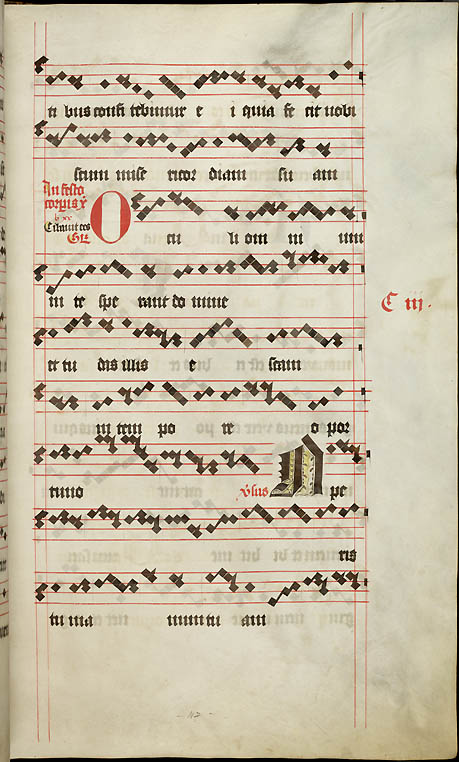 ti bus confi tebimur e i quia fe cit nobi
scum mise ricor diam su am
In festo
corpis xpi
O cu li om ni um
Gr
in te spe rant do mine
et tu das illis e scam
in tem po re o por
tuno vs A pe
ris
tu ma num tu am
C iij.